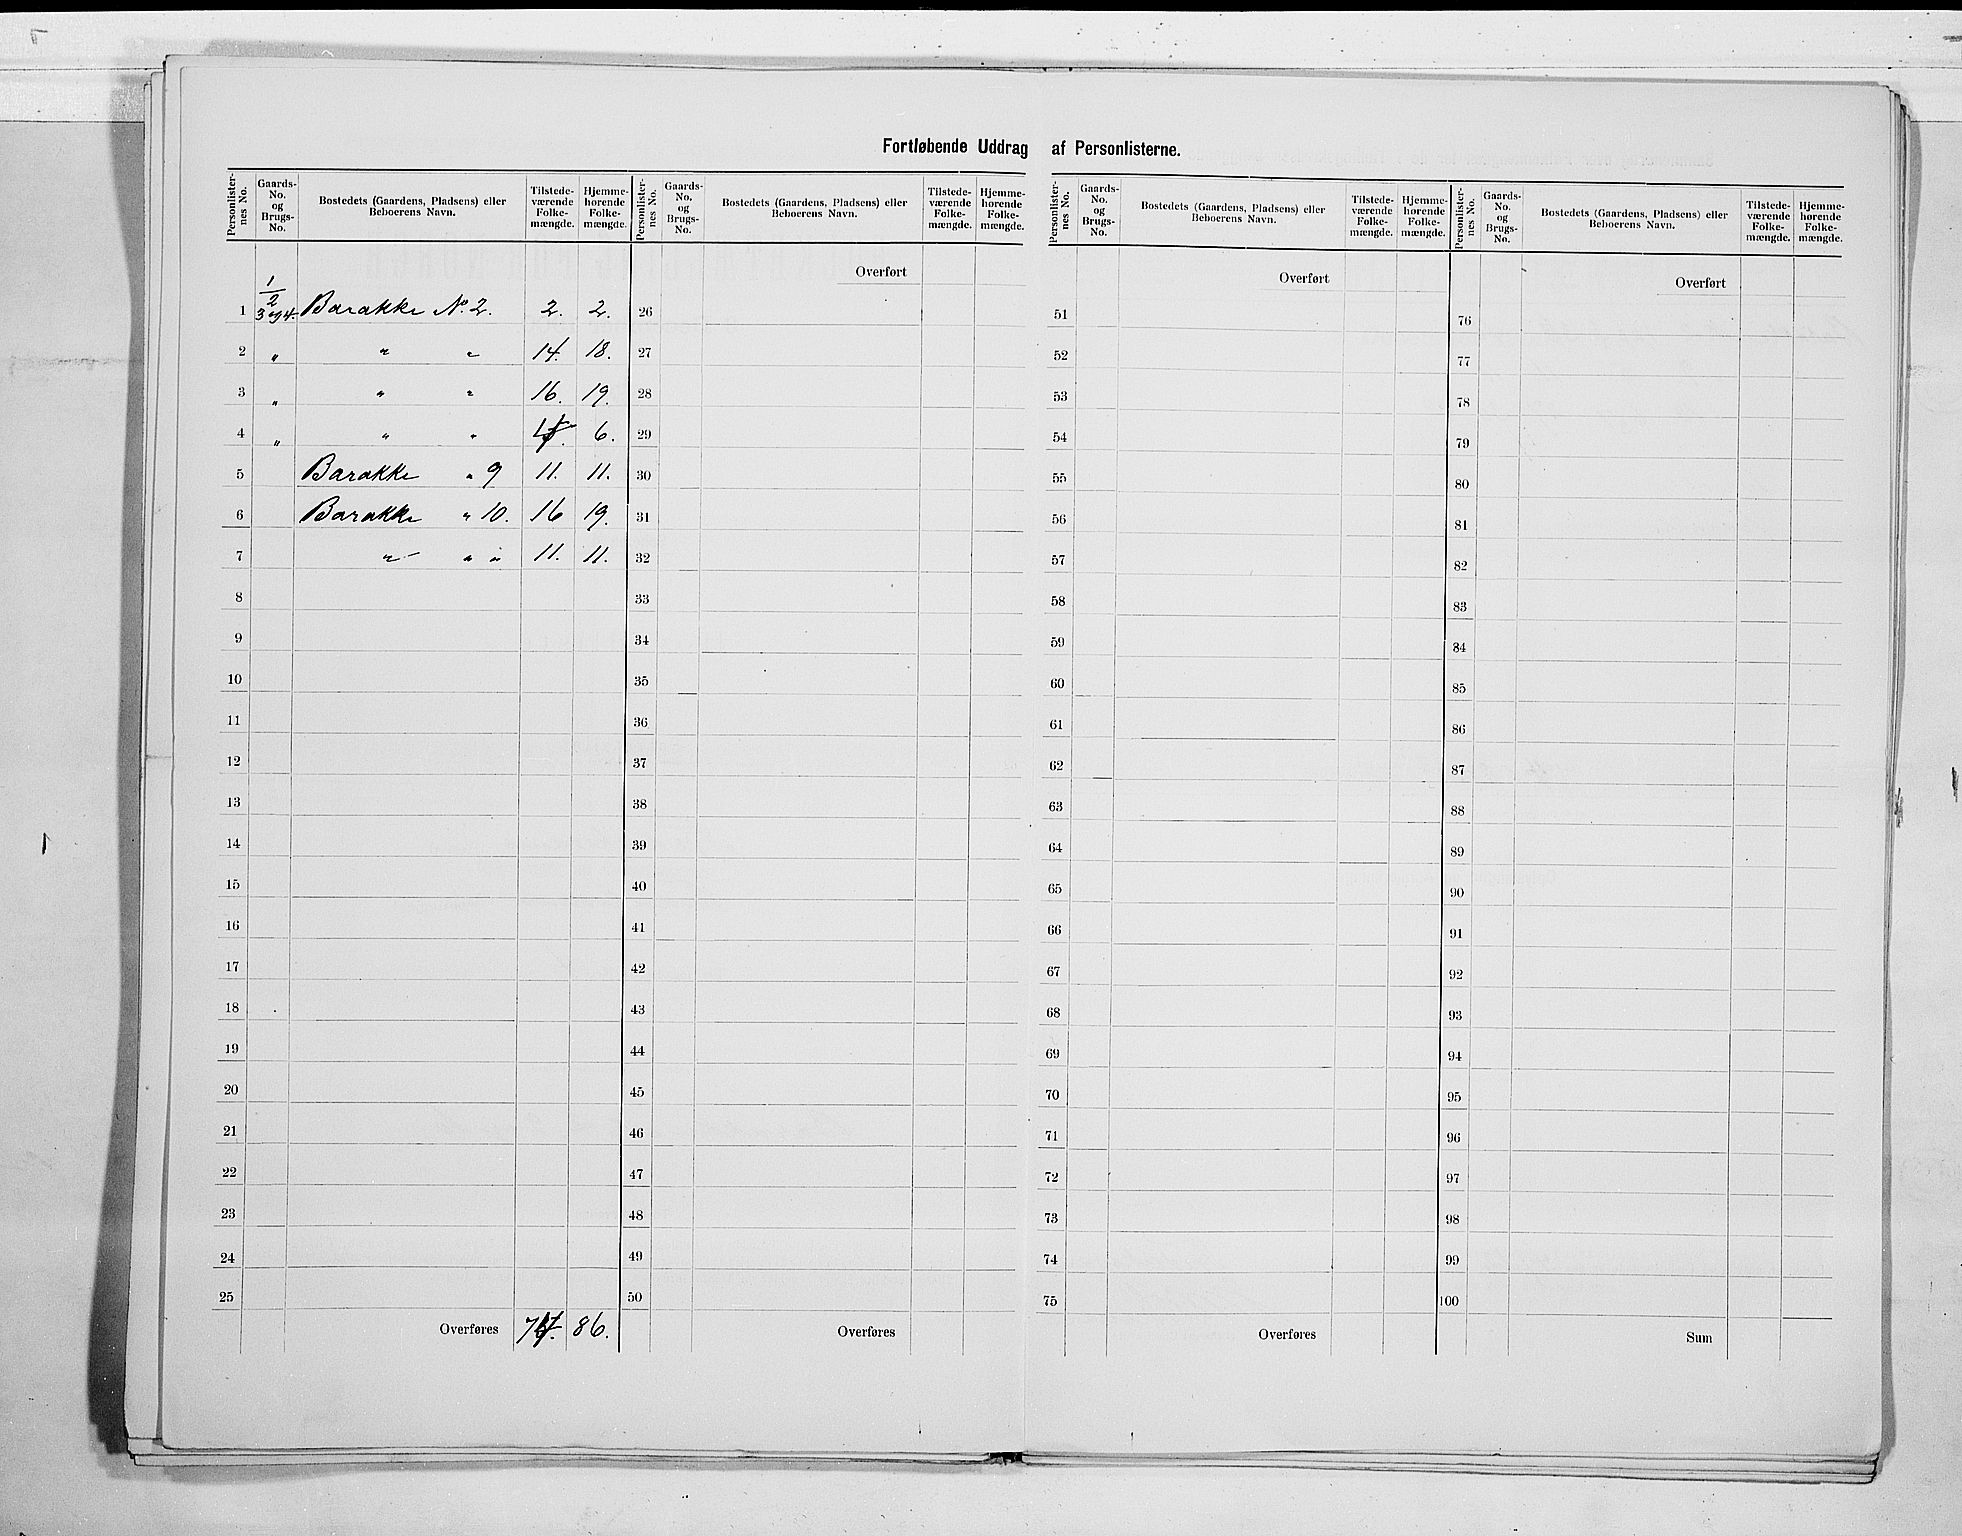 Fortløbende Uddrag af Personlisterne.
Personlister-nes No. | Gaards-No. og Brugs-No. | Bostedets (Gaardens, Pladsens) eller Beboerens Navn. | Tilstede-værende Folke-mængde. | Hjemme-hørende Folke-mængde.
1 | 1/2 3 og 4. | Barakke No. 2. | 2. | 2.
2 | " | " " | 14. | 18.
3 | " | " " | 16. | 19.
4 | " | " " | | 6.
5 | Barakke " 9 | 11. | 11.
6 | Barakke " 10. | 16 | 19.
7 | " " " | 11. | 11.
8
9
10
11
12
13
14
15
16
17
18
19
20
21
22
23
24
25
Overføres | | 86.
Personlister-nes No. | Gaards-No. og Brugs-No. | Bostedets (Gaardens, Pladsens) eller Beboerens Navn. | Tilstede-værende Folke-mængde. | Hjemme-hørende Folke-mængde.
Overført
26
27
28
29
30
31
32
33
34
35
36
37
38
39
40
41
42
43
44
45
46
47
48
49
50
Overføres
Personlister-nes No. | Gaards-No. og Brugs-No. | Bostedets (Gaardens, Pladsens) eller Beboerens Navn. | Tilstede-værende Folke-mængde. | Hjemme-hørende Folke-mængde.
Overført
51
52
53
54
55
56
57
58
59
60
61
62
63
64
65
66
67
68
69
70
71
72
73
74
75
Overføres
Personlister-nes No. | Gaards-No. og Brugs-No. | Bostedets (Gaardens, Pladsens) eller Beboerens Navn. | Tilstede-værende Folke-mængde. | Hjemme-hørende Folke-mængde.
Overført
76
77
78
79
80
81
82
83
84
85
86
87
88
89
90
91
92
93
94
95
96
97
98
99
100
Sum